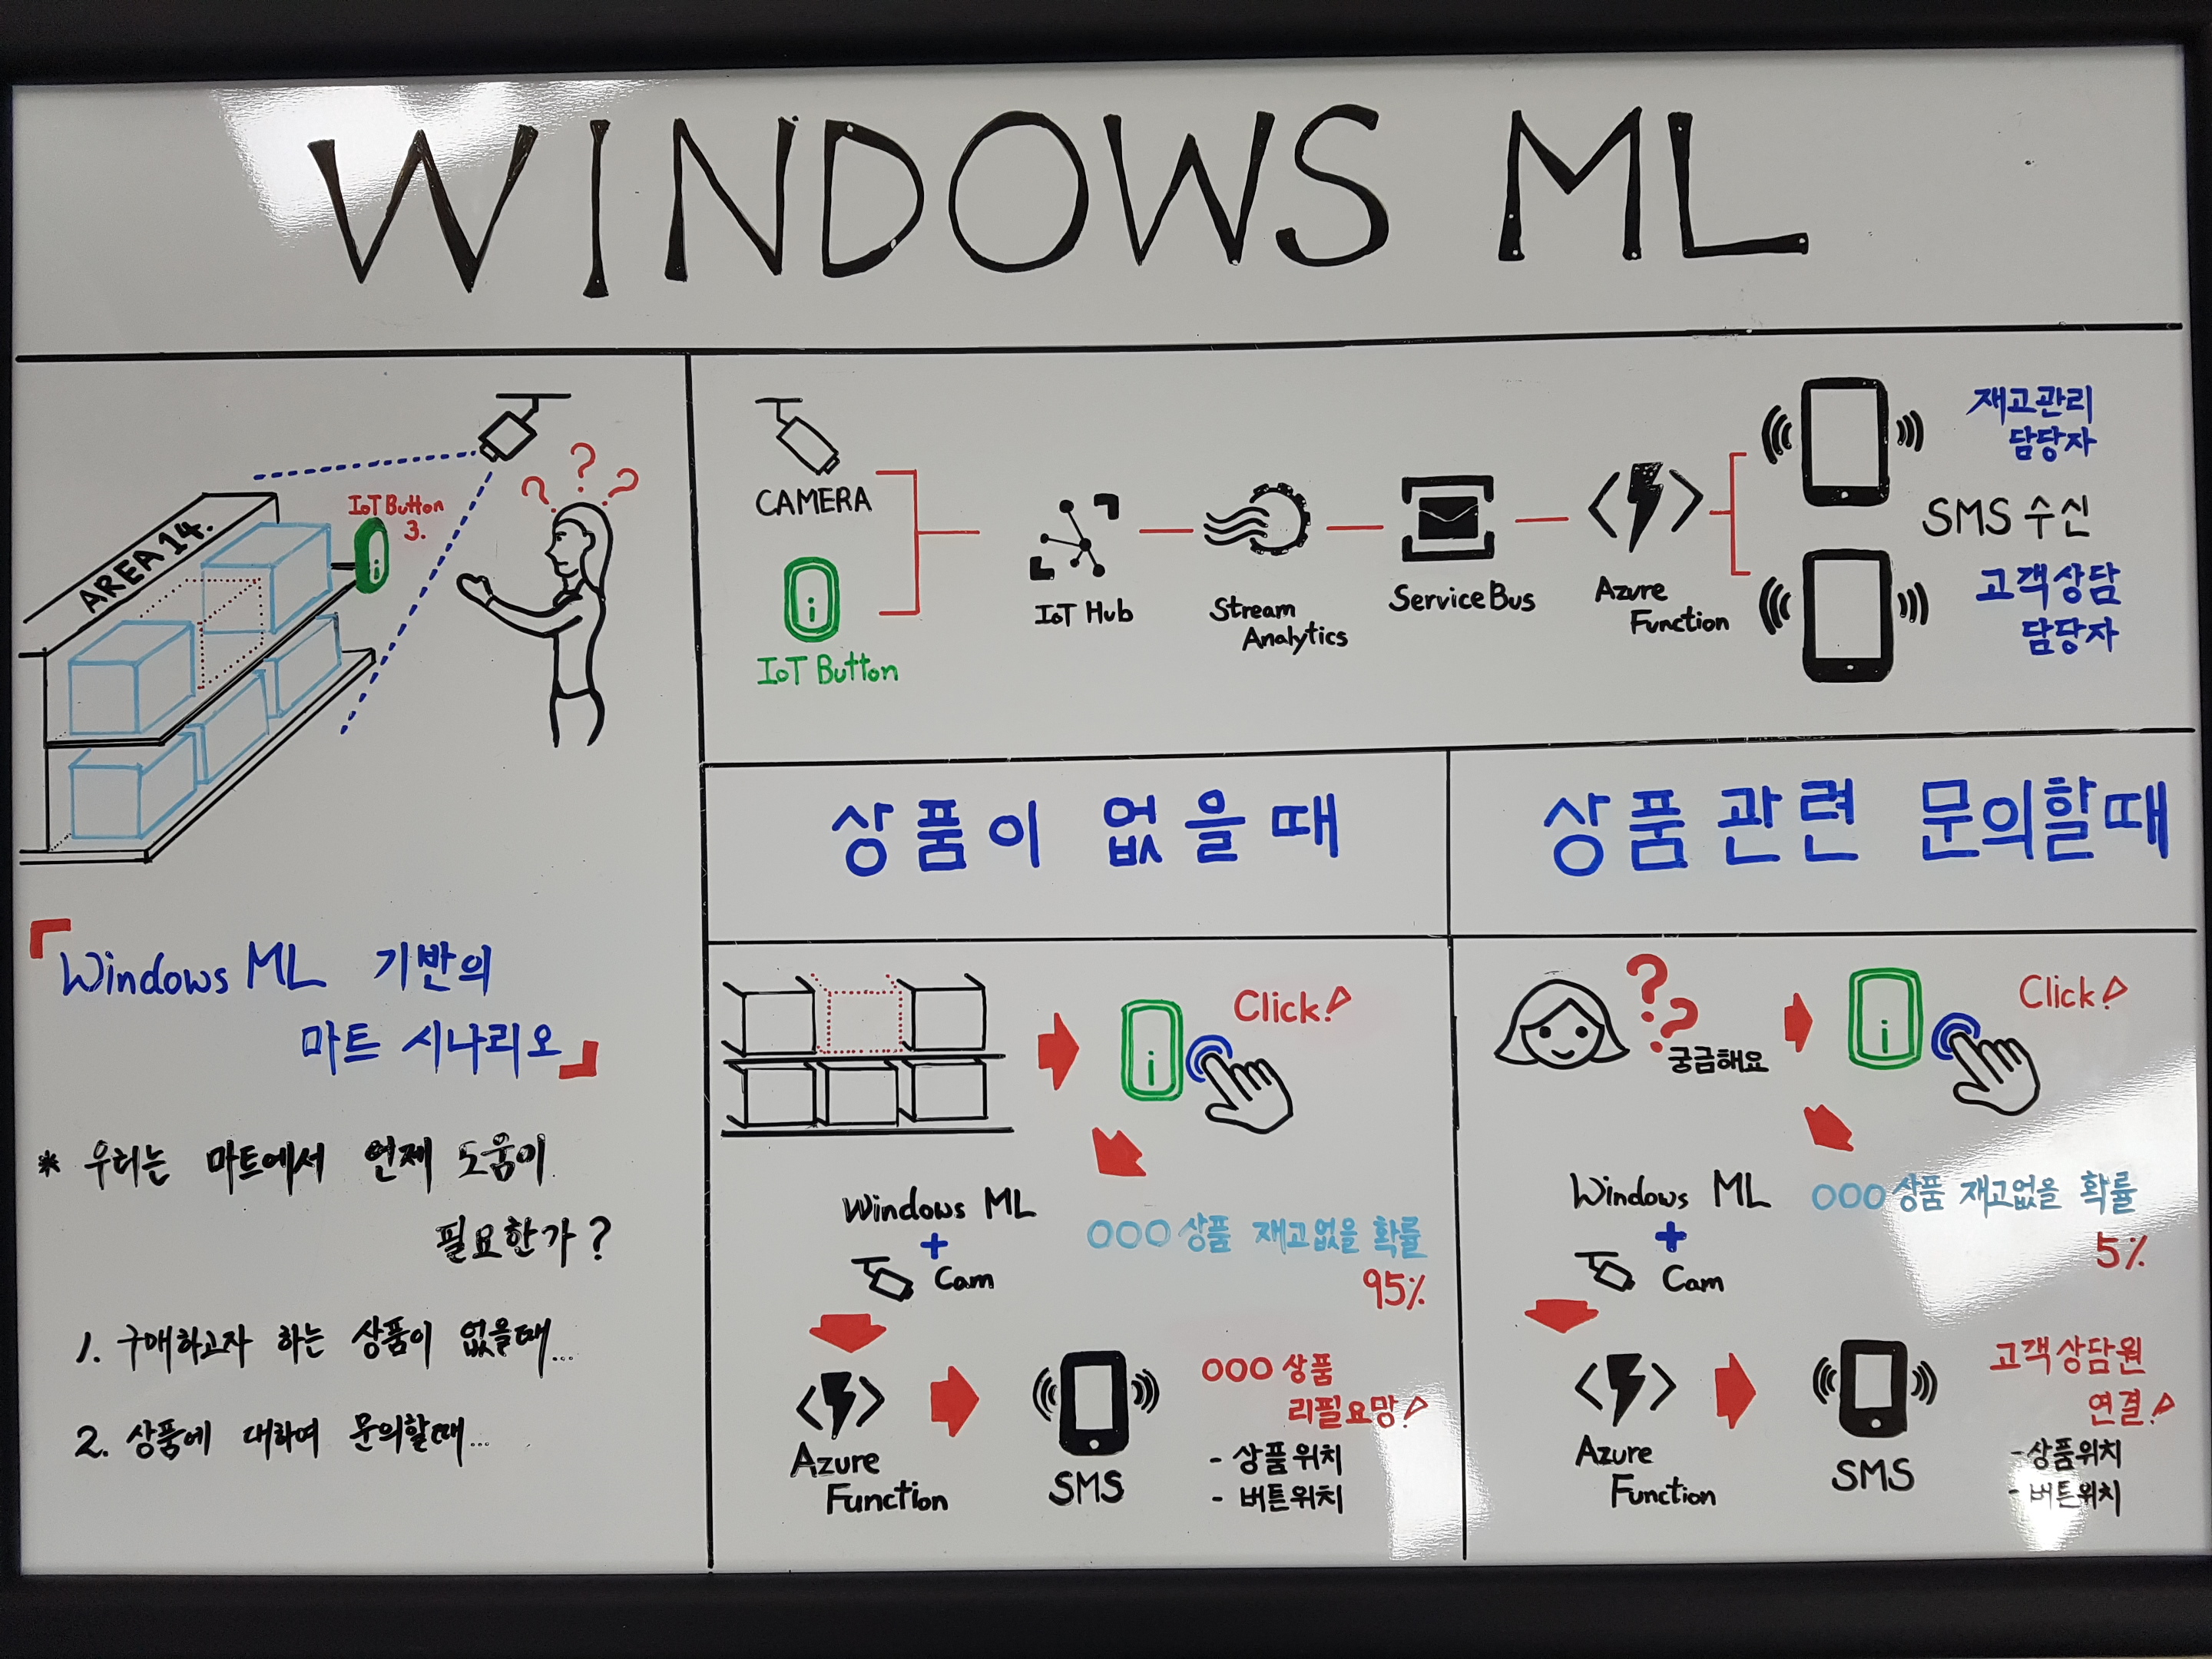 WINDOWS ML
AREA 14.
IoT Button
3.
???
『Windows ML 기반의
마트 시나리오』
* 우리는 마트에서 언제 도움이
필요한가?
1. 구매하고자 하는 상품이 없을때...
2. 상품에 대하여 문의할때...
CAMERA
IoT Button
IoT Hub
Stream
Analytics
Service Bus
Azure
Function
재고관리
담당자
SMS 수신
고객상담
담당자
상품이 없을 때
Click!
Windows ML
+
Cam
OOO상품 재고없을 확률
95%
Azure
Function
SMS
OOO상품
리필요망!
- 상품위치
- 버튼위치
상품 관련 문의할때
??
궁금해요
Click!
Windows ML
+
Cam
OOO상품 재고없을 확률
5%
Azure
Function
SMS
고객상담원
연결!
- 상품위치
- 버튼위치